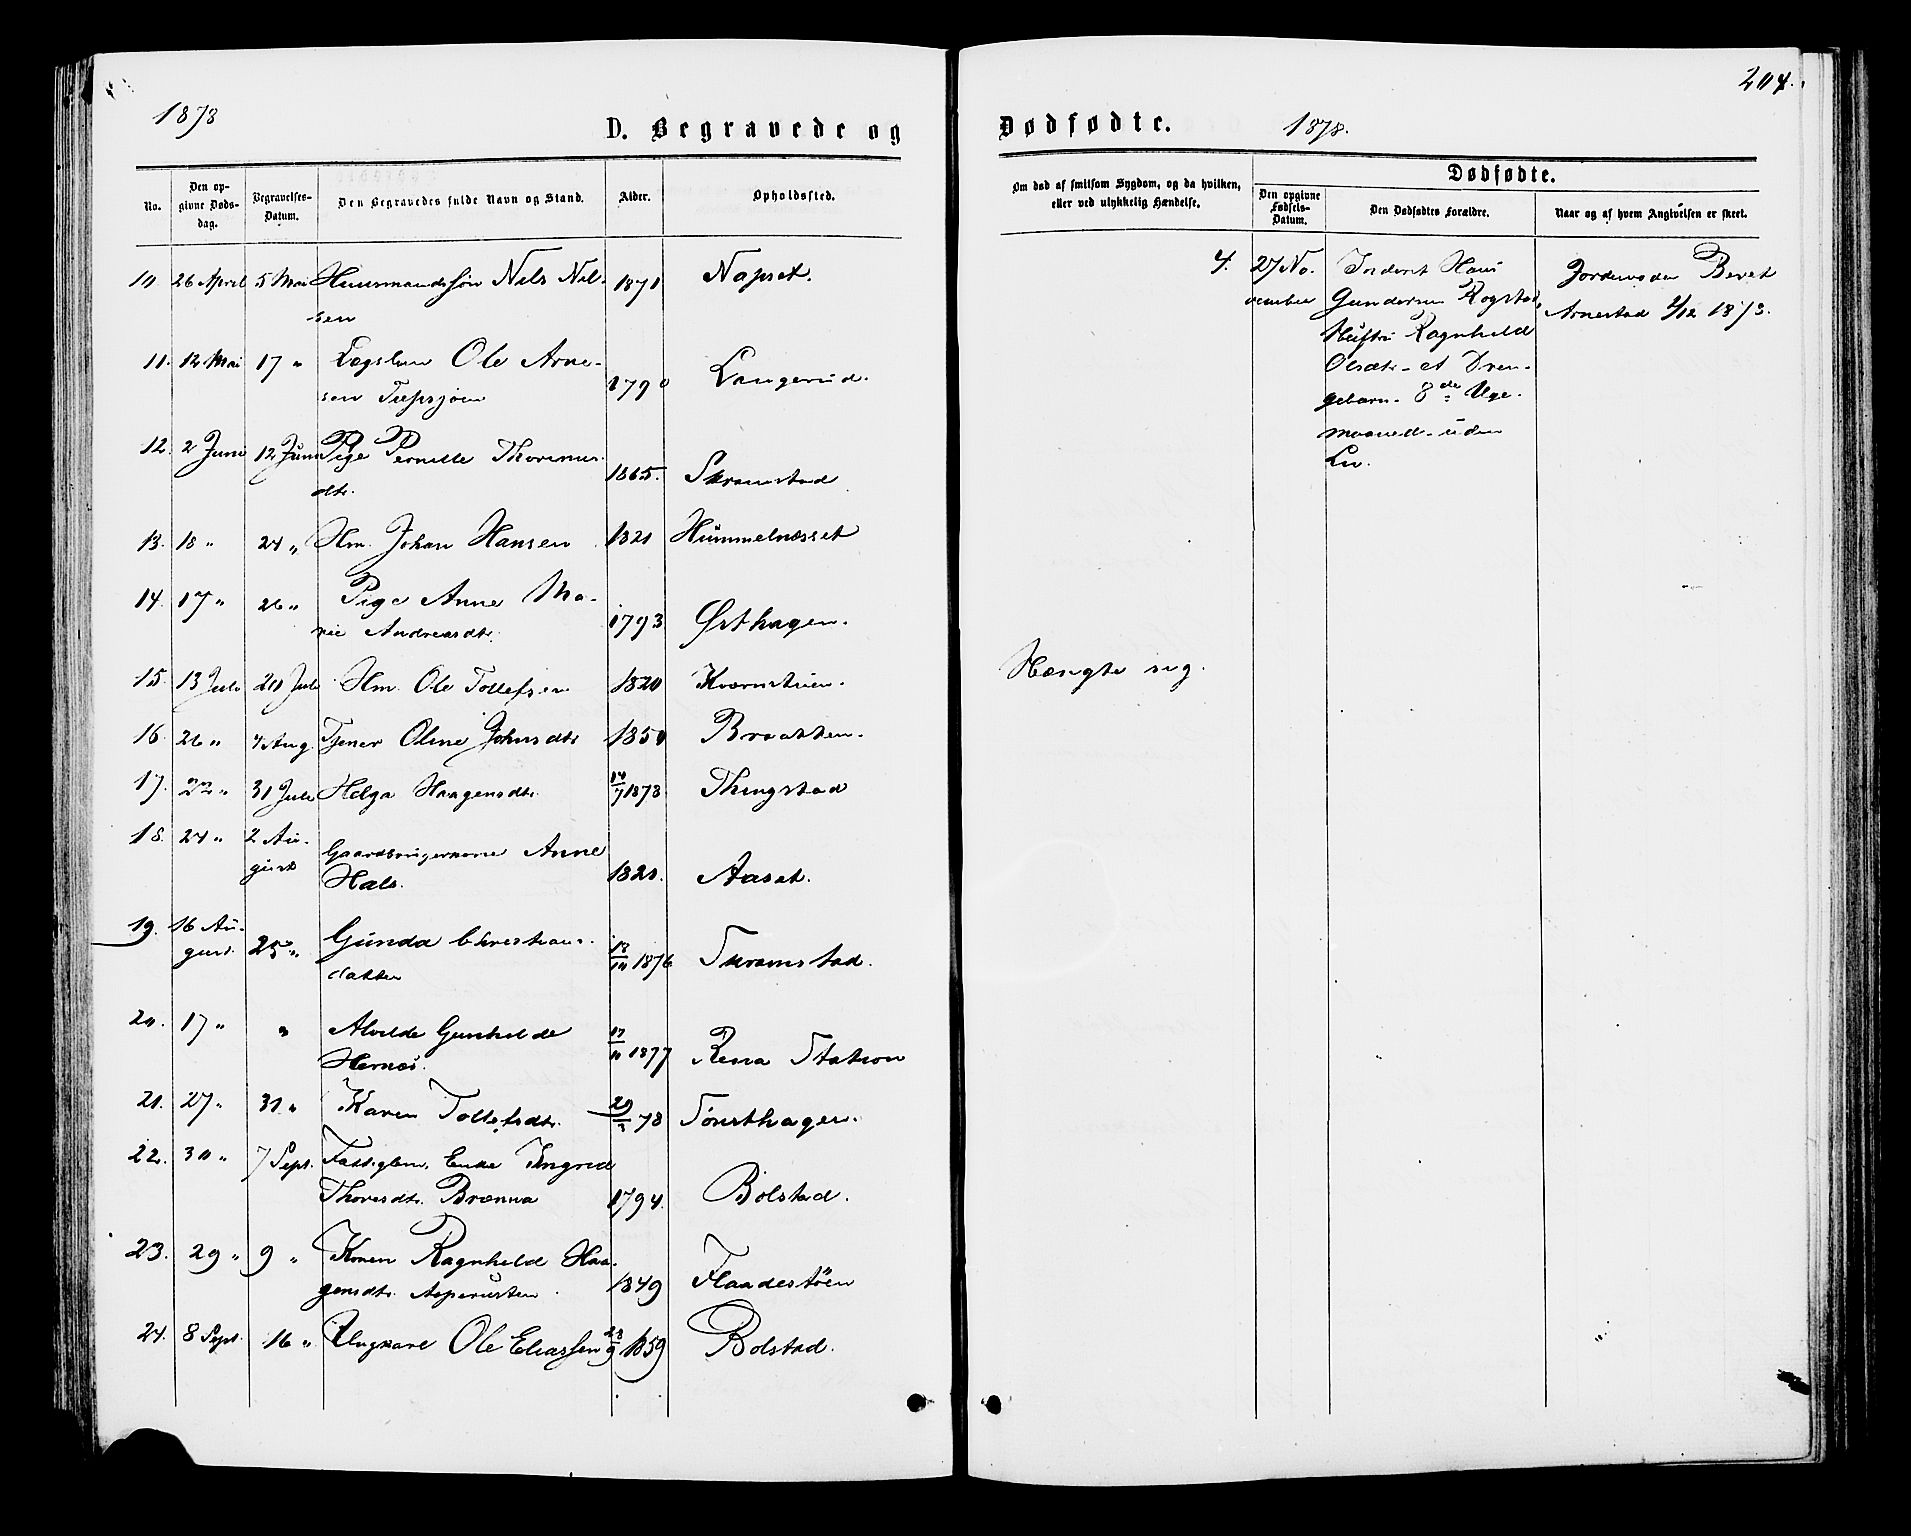 1878
D. Begravede og
No.
Den op-
givne Døds-
dag.
Begravelses-
Datum.
Den Begravedes fulde Navn og Stand.
Alder.
Opholdssted.
10 26 April 5 Mai Huusmandssøn Nils Nil- 1871 Nopset.
sen
11. 12 Mai 17 " Lægslem Ole Arne- 1790 Langerud.
sen
12. 2 Juni 12 Juni Pige Pernille 1865. Skramstad
dtr.
13. 18 " 24 " Hm. Johan Hansen 1821 Hummelnæsset
14. 17 " 26 " Pige Anne Ma- 1793 Østhagen.
rie Andreasdtr.
15. 13 Juli 20 Juli Hm. Ole Tollefsen 1820
16. 26 " 4 Aug Tjener Oline Johnsdtr 1850 Braatten.
17. 22 " 31 Juli Helga Haagensdtr. 14/7 1878 Thingstad
18. 24 " 2 Au-
gust Gaardbrugerkone Anne 1821. Aaset.
Hals.
19. 16 Au-
gust. 25 " Gunda Christians- 18/10 1876 Skramstad.
datter
20. 17 " " Alvilde Gunhilde 1877 Rena Station
Hernæs.
21. 27 " 31 " Karen Tollefsdtr. 78 Sønsthagen.
22. 30 " 7 Sept. Fattiglem, Enke Ingrid
Thoresdtr. Brænna 1794. Bolstad.
23. 29 " 9 " Karen Ragnhild Haa-
gensdtr. Asperusten 1849 Flaadestøen
24. 8 Sept. 16 " Ungkarl Ole Eliassen 28/9 1859 Bolstad.
204.
Dødfødte. 1878.
Om død af smitsom Sygdom, og da hvilken,
eller ved ulykkelig Hændelse.
Dødfødte.
Den opgivne
Fødsels-
Datum.
Den Dødfødtes Forældre.
Naar og af hvem Angivelsen er skeet.
4. 27 No-
vember
Inderst Hans
Gundersen Rogstad,
Hustru Ragnhild
Olsdtr. et Dren-
gebarn. 8de Uge.
maaned. uden
Liv.
Jordemoder Beret
Arnestad 4/12 1878.
Hængte sig.